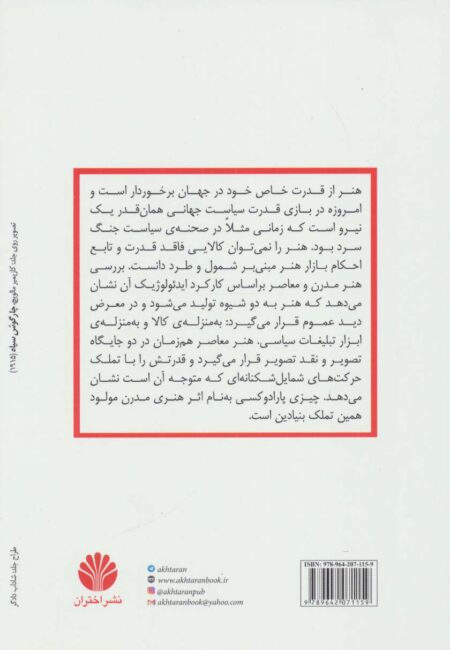 هنر از قدرت خاص خود در جهان برخوردار است و
امروزه در بازی قدرت سیاست جهانی همان‌قدر یک
نیرو است که زمانی مثلاً در صحنه‌ی سیاست جنگ
سرد بود. هنر را نمی‌توان کالایی فاقد قدرت و تابع
احکام بازار هنر مبنی‌بر شمول و طرد دانست. بررسی
هنر مدرن و معاصر براساس کارکرد ایدئولوژیک آن نشان
می‌دهد که هنر به دو شیوه تولید می‌شود و در معرض
دید عموم قرار می‌گیرد: به‌منزله‌ی کالا و به‌منزله‌ی
ابزار تبلیغات سیاسی. هنر معاصر هم‌زمان در دو جایگاه
تصویر و نقد تصویر قرار می‌گیرد و قدرتش را با تملک
حرکت‌های شمایل‌شکنانه‌ای که متوجه آن است نشان
می‌دهد. چیزی پارادوکسی به‌نام اثر هنری مدرن مولود
همین تملک بنیادین است.
تصویر روی جلد: کازیمیر مالویچ، چارگوش سیاه (۱۹۱۵)
طراح جلد: شاداب دادگر
نشر اختران
akhtaran
www.akhtaranbook.ir
@akhtaranpub
akhtaranbook@yahoo.com
ISBN: 978-964-207-115-9
9789642071159